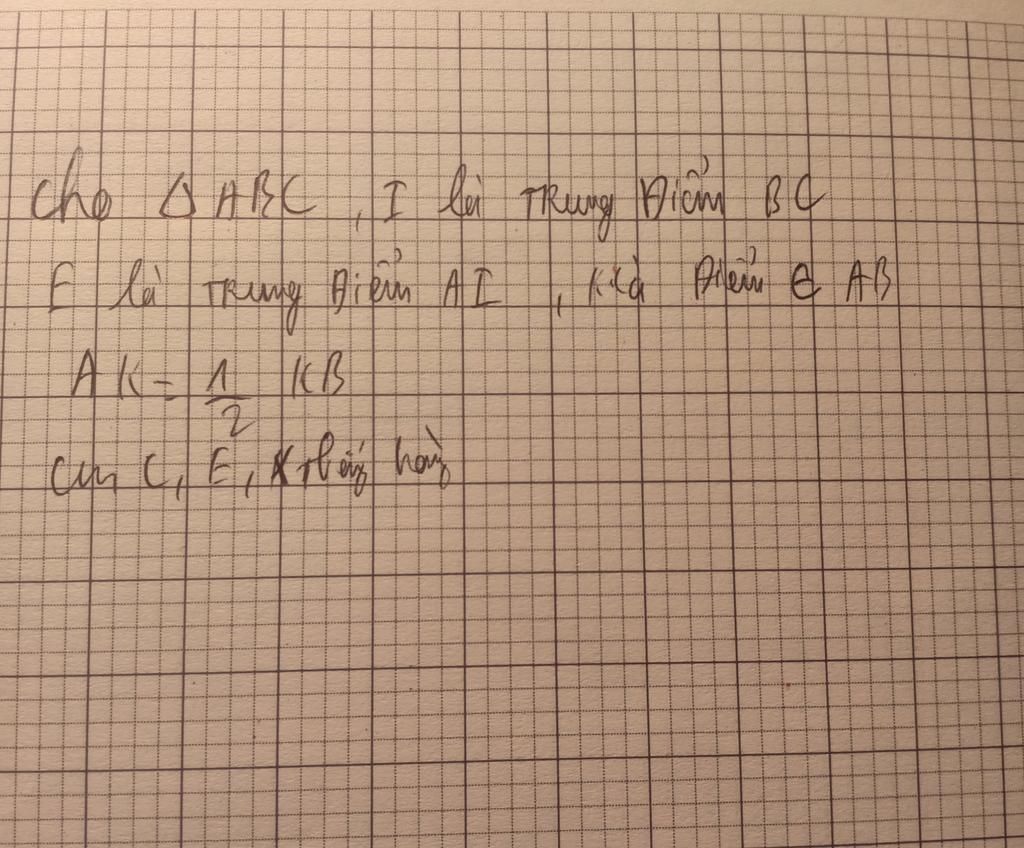 Cho Δ ABC, I là TRung Điểm BC
E là TRung Điểm AI, K là Điểm ∈ AB
AK = 1/2 KB
cm C, E, K thẳng hàng